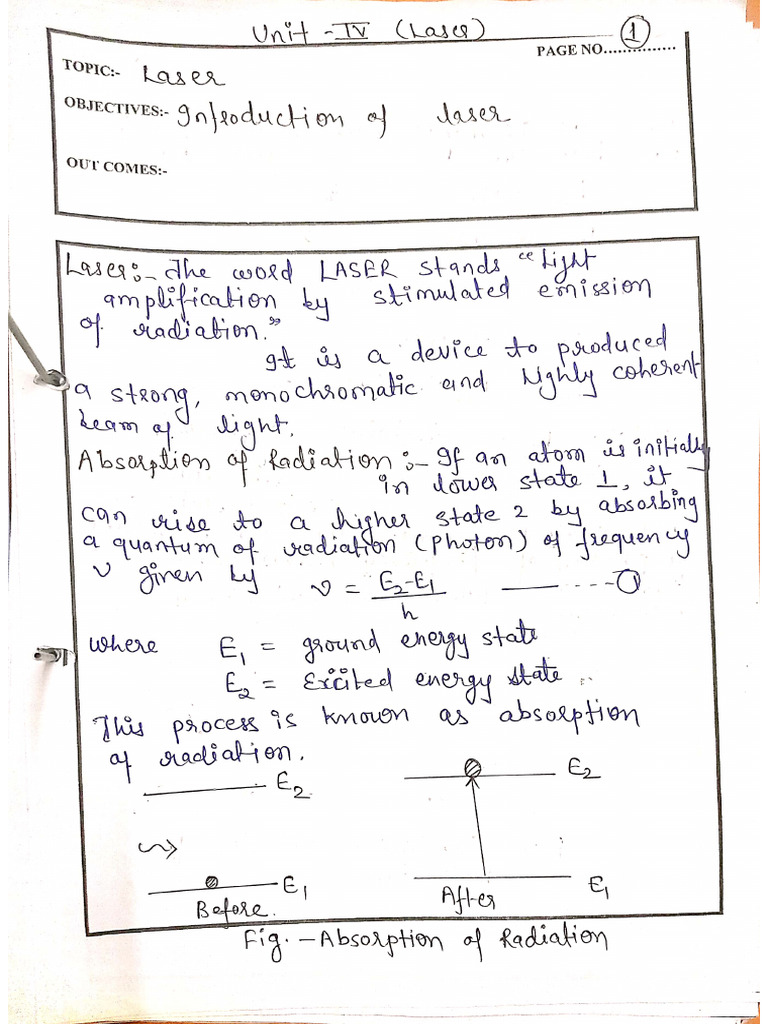 Unit - IV (Laser)
PAGE NO............... 1
TOPIC:- Laser
OBJECTIVES:- Introduction of laser
OUT COMES:-
Laser:- The word LASER stands "Light
amplification by stimulated emission
of radiation."
It is a device to produced
a strong, monochromatic and highly coherent
beam of light.
Absorption of Radiation :- If an atom is initially
in lower state 1, it
can rise to a higher state 2 by absorbing
a quantum of radiation (photon) of frequency
ν given by ν = (E₂-E₁)/h —— ---①
where E₁ = ground energy state
E₂ = Excited energy state
This process is known as absorption
of radiation.
E₂ E₂
E₁ E₁
Before. After
Fig. - Absorption of Radiation